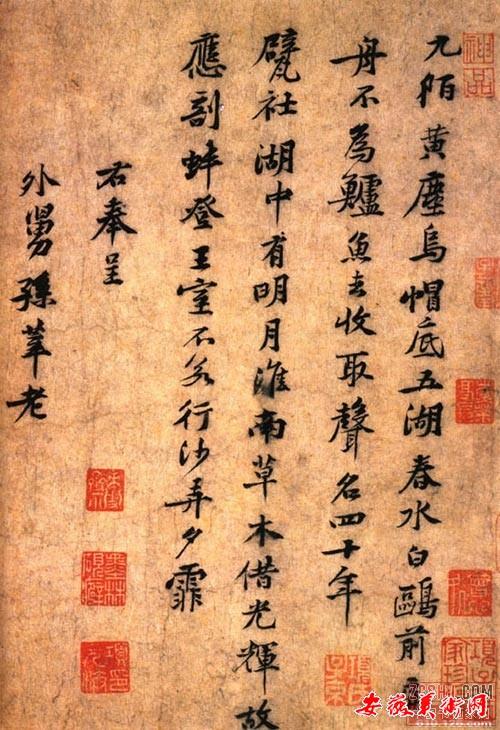 九陌黄塵烏帽底五湖春水白鷗前
舟不為鱸魚去收取聲名四十年
甓社湖中有明月淮南草木借光輝故
應剖蚌登王室不若行沙弄夕霏
右奉呈
外舅孫莘老
神品
安徽美术网